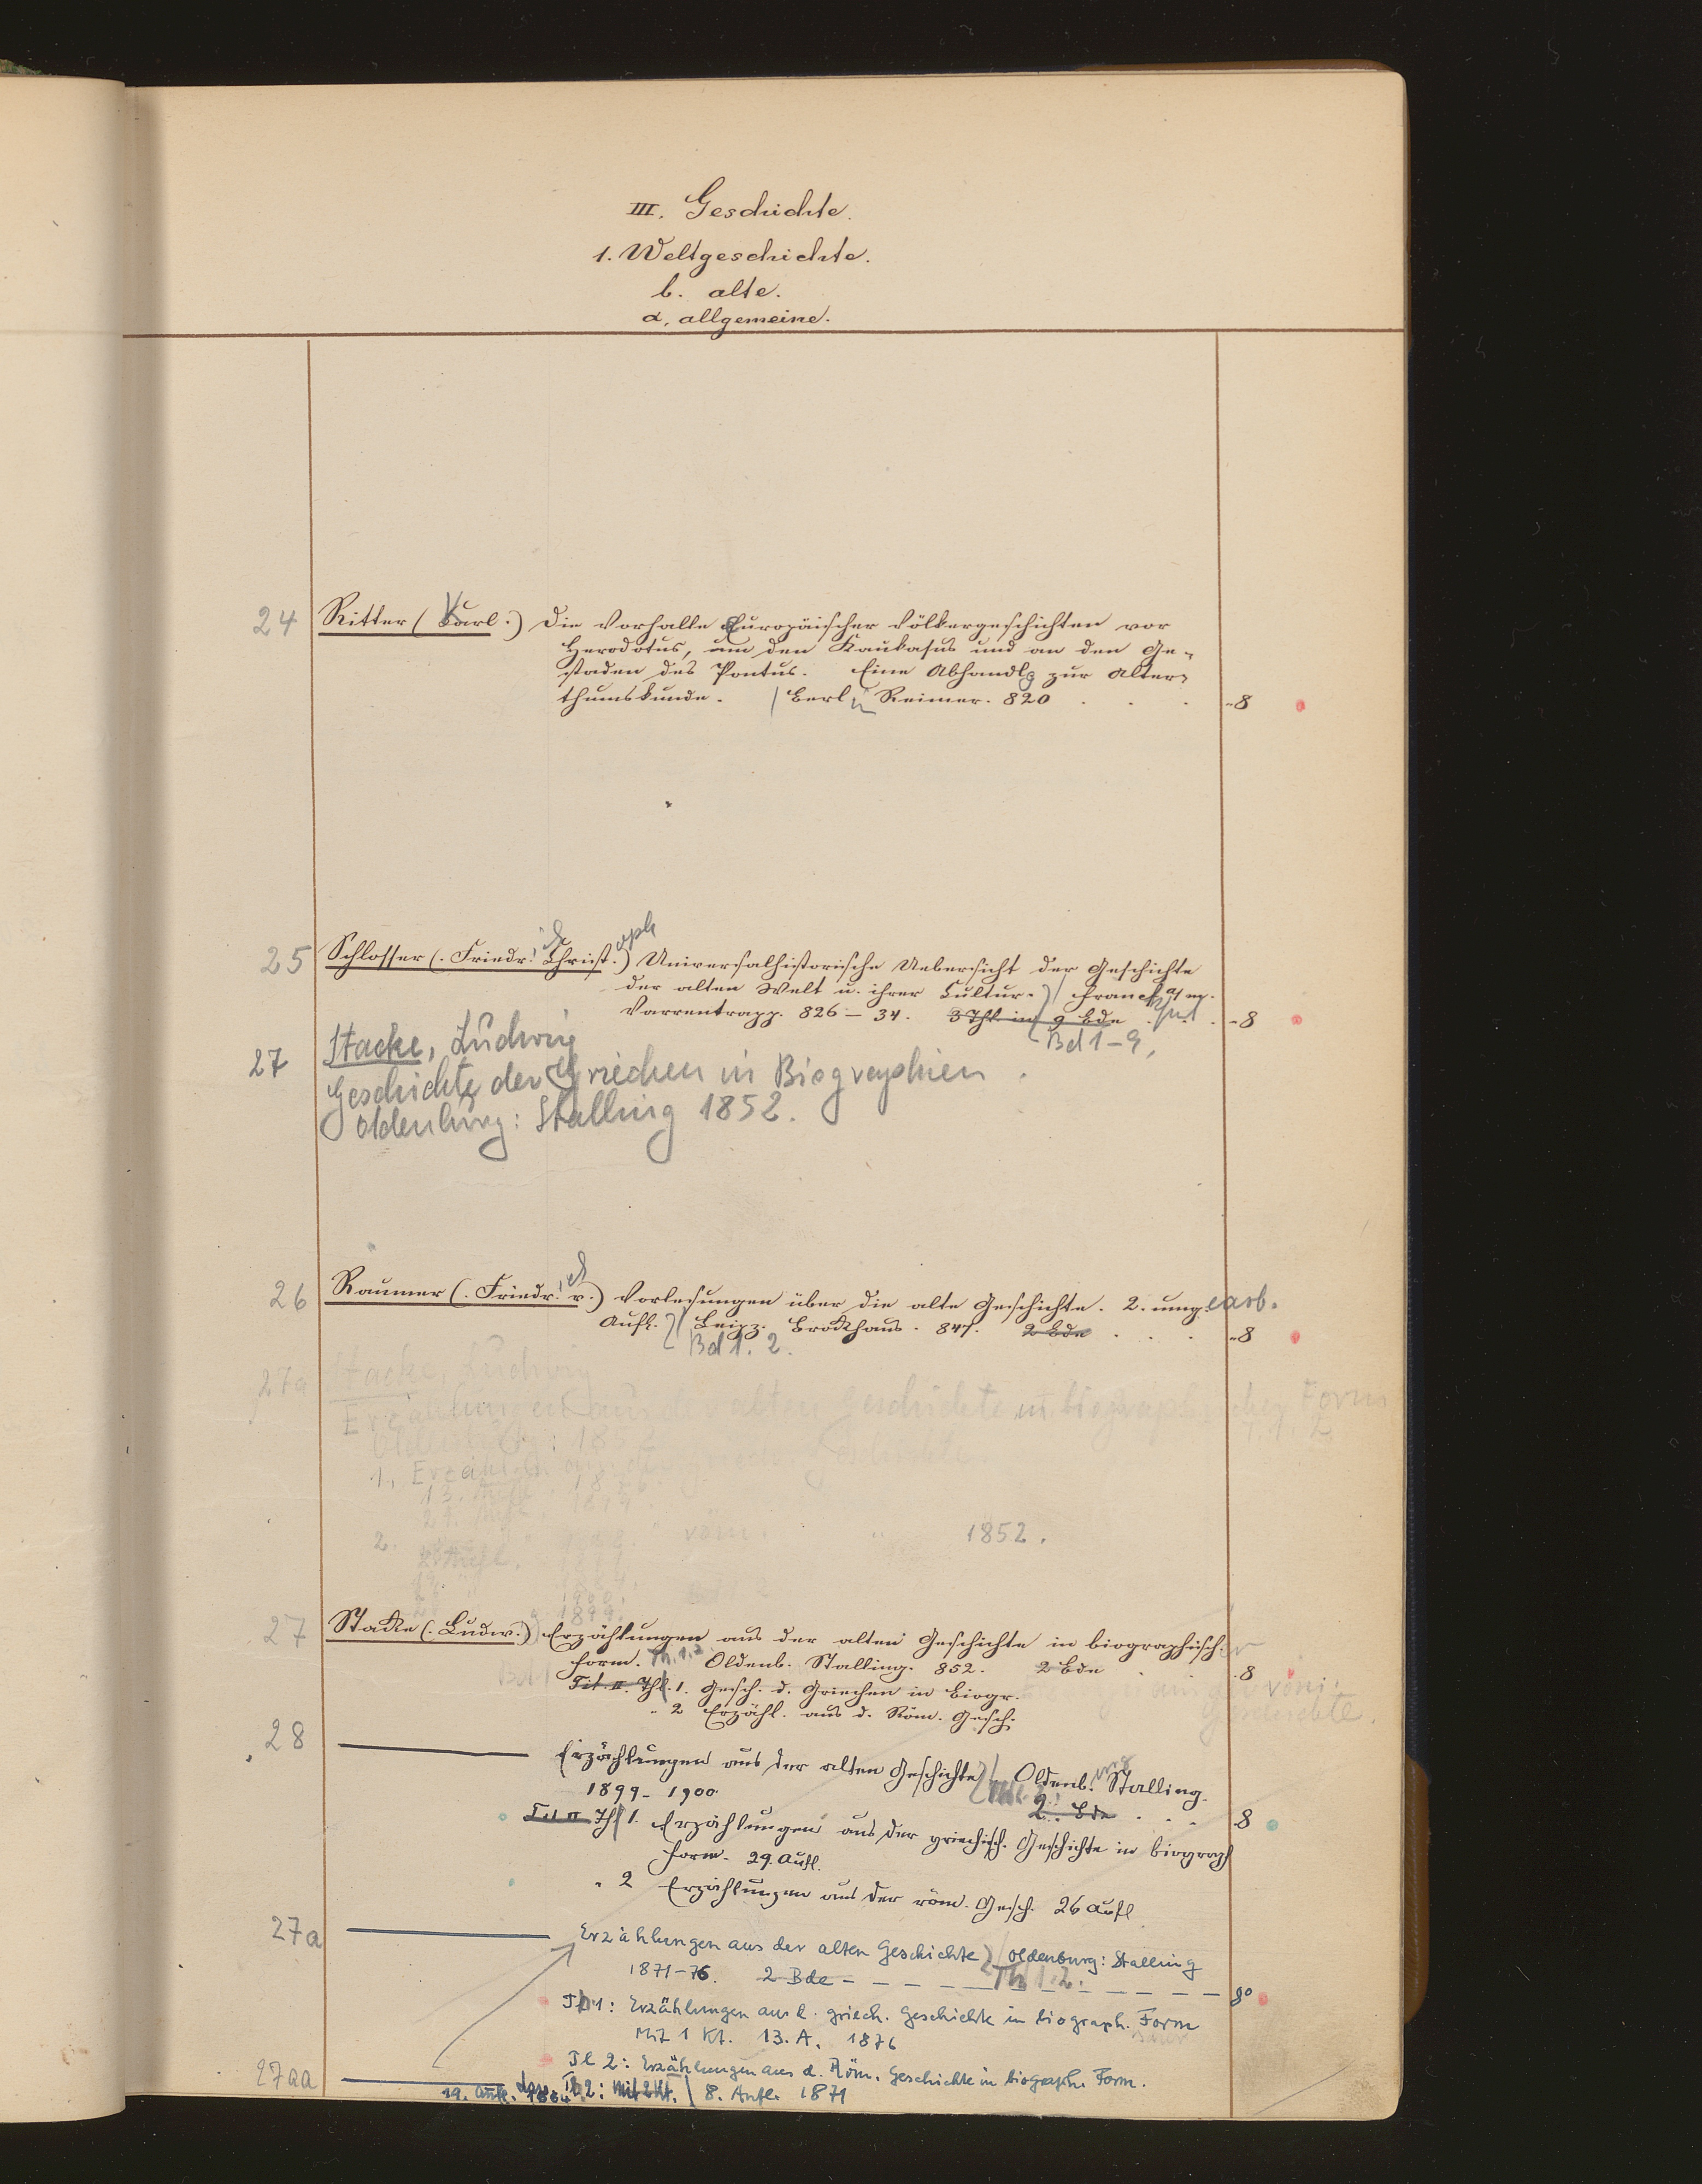 III. Geschichte.
1. Weltgeschichte.
b. alte.
α. allgemeine.
24 Ritter (Karl.) Die Vorhalle Europäischer Völkergeschichten vor
Herodotus, um den Kaukasus und an den Ge-
staden des Pontus. Eine Abhandlg zur Alter-
thumskunde. Berlin Reimer. 820 . . . -8
25 Schlosser (. Friedrich Christoph.) Universalhistorische Uebersicht der Geschichte
der alten Welt u. ihrer Cultur. Frankf a/m.
Varrentrapp. 826 – 34. 3 Thl in 9 Bde . . . -8
Bd 1-9,
27 Stacke, Ludwig
Geschichte der Griechen in Biographien.
Oldenburg: Stalling 1852.
26 Raumer (. Friedrich v.) Vorlesungen über die alte Geschichte. 2. umgearb.
Aufl. Leipz. Brockhaus. 847. 2 Bde . . . -8
Bd 1. 2.
27a Stacke, Ludwig
Erzählungen aus der alten Geschichte in biographischer Form
Oldenburg: 1852 T. 1. 2
1., Erzähl. Geschichte.
13. Aufl. 18
29. Aufl. 1899
2. röm. " 1852.
Aufl.
1900.
1899.
27 Stacke (. Ludw.) Erzählungen aus der alten Geschichte in biographischer
Form. Th. 1. 2 Oldenb. Stalling. 852. 2 Bde . 8
Tit. II. Thl. 1. Gesch. d. Griechen in Biogr. röm.
" 2 Erzähl. aus d. Röm. Gesch. Geschichte.
28 Erzählungen aus der alten Geschichte Oldenburg Stalling.
1899 - 1900. 2. Bde . . . 8
Tit II Th 1. Erzählungen aus der griechisch. Geschichte in biograph
Form. 29. Aufl.
" 2 Erzählungen aus der röm. Gesch. 26 Aufl
27a Erzählungen aus der alten Geschichte Oldenburg: Stalling
1871-76. 2 Bde - - - Th 1. 2. - - - 8°
Th 1: Erzählungen aus d. griech. Geschichte in biograph. Form
Mit 1 Kt. 13. A. 1876
Tl 2: Erzählungen aus d. Röm. Geschichte in biograph. Form.
27aa 19. Aufl. Th 2: Mit 2 Kt. 8. Aufl. 1871